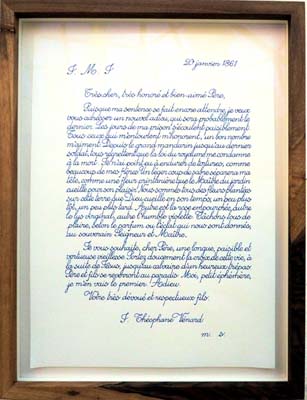 J. M. J.
20 janvier 1861
Très cher, très honoré et bien-aimé Père,
Puisque ma sentence se fait encore attendre, je veux
vous adresser un nouvel adieu, qui sera probablement le
dernier. Les jours de ma prison s'écoulent paisiblement.
Tous ceux qui m'entourent m'honorent, un bon nombre
m'aiment. Depuis le grand mandarin jusqu'au dernier
soldat, tous regrettent que la loi du royaume me condamne
à la mort. Je n'ai point eu à endurer de tortures, comme
beaucoup de mes frères. Un léger coup de sabre séparera ma
tête, comme une fleur printanière que le Maître du jardin
cueille pour son plaisir. Nous sommes tous des fleurs plantées
sur cette terre que Dieu cueille en son temps, un peu plus
tôt, un peu plus tard. Autre est la rose empourprée, autre
le lys virginal, autre l'humble violette. Tâchons tous de
plaire, selon le parfum ou l'éclat qui nous sont donnés,
au souverain Seigneur et Maître.
Je vous souhaite, cher Père, une longue, paisible et
vertueuse vieillesse. Portez doucement la croix de cette vie, à
la suite de Jésus, jusqu'au calvaire d'un heureux trépas.
Père et fils se reverront au paradis. Moi, petit éphémère,
je m'en vais le premier. Adieu.
Votre très dévoué et respectueux fils.
J. Théophane Vénard
m. s.